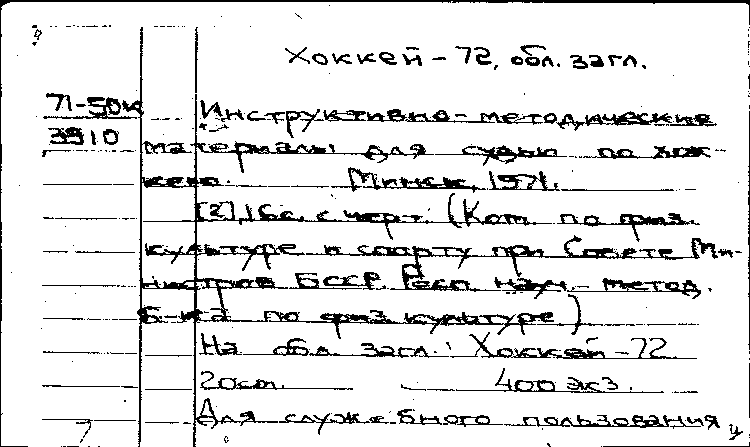 Хоккей - 72, обл. загл.
71-50к
3910
Инструктивно-методические
материалы для судьи по хок-
кею. Минск, 1971.
[2], 16с. с черт. (Ком. по физ.
культуре и спорту при Совете Ми-
нистров БССР. Респ. науч.-метод.
б-ка по физ. культуре)
На обл. загл.: Хоккей-72.
20см. 400 экз.
Для служебного пользования